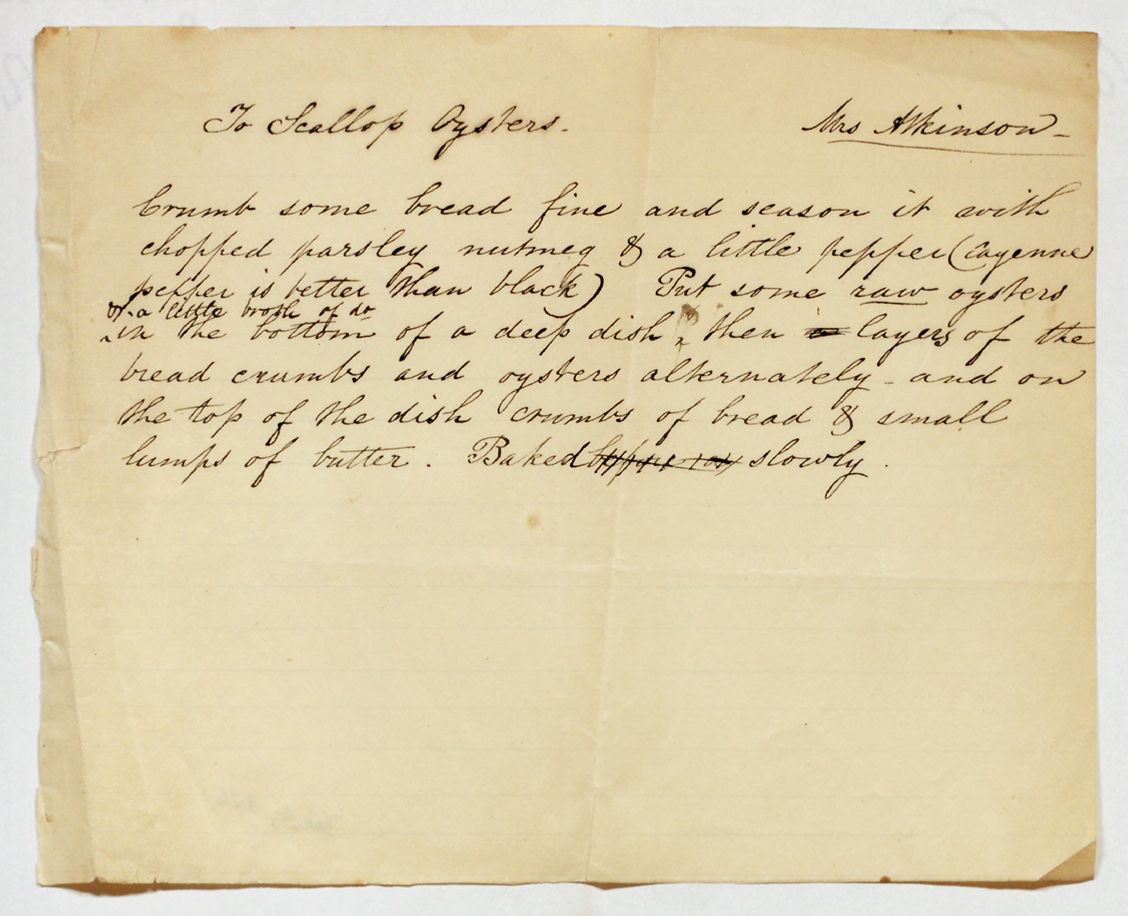 To Scallop Oysters.
Mrs Atkinson
Crumb some bread fine and season it with
chopped parsley nutmeg & a little pepper (Cayenne
pepper is better than black) Put some raw oysters
& a little broth of do
in the bottom of a deep dish, then layers of the
bread crumbs and oysters alternately - and on
the top of the dish crumbs of bread & small
lumps of butter. Baked slowly.